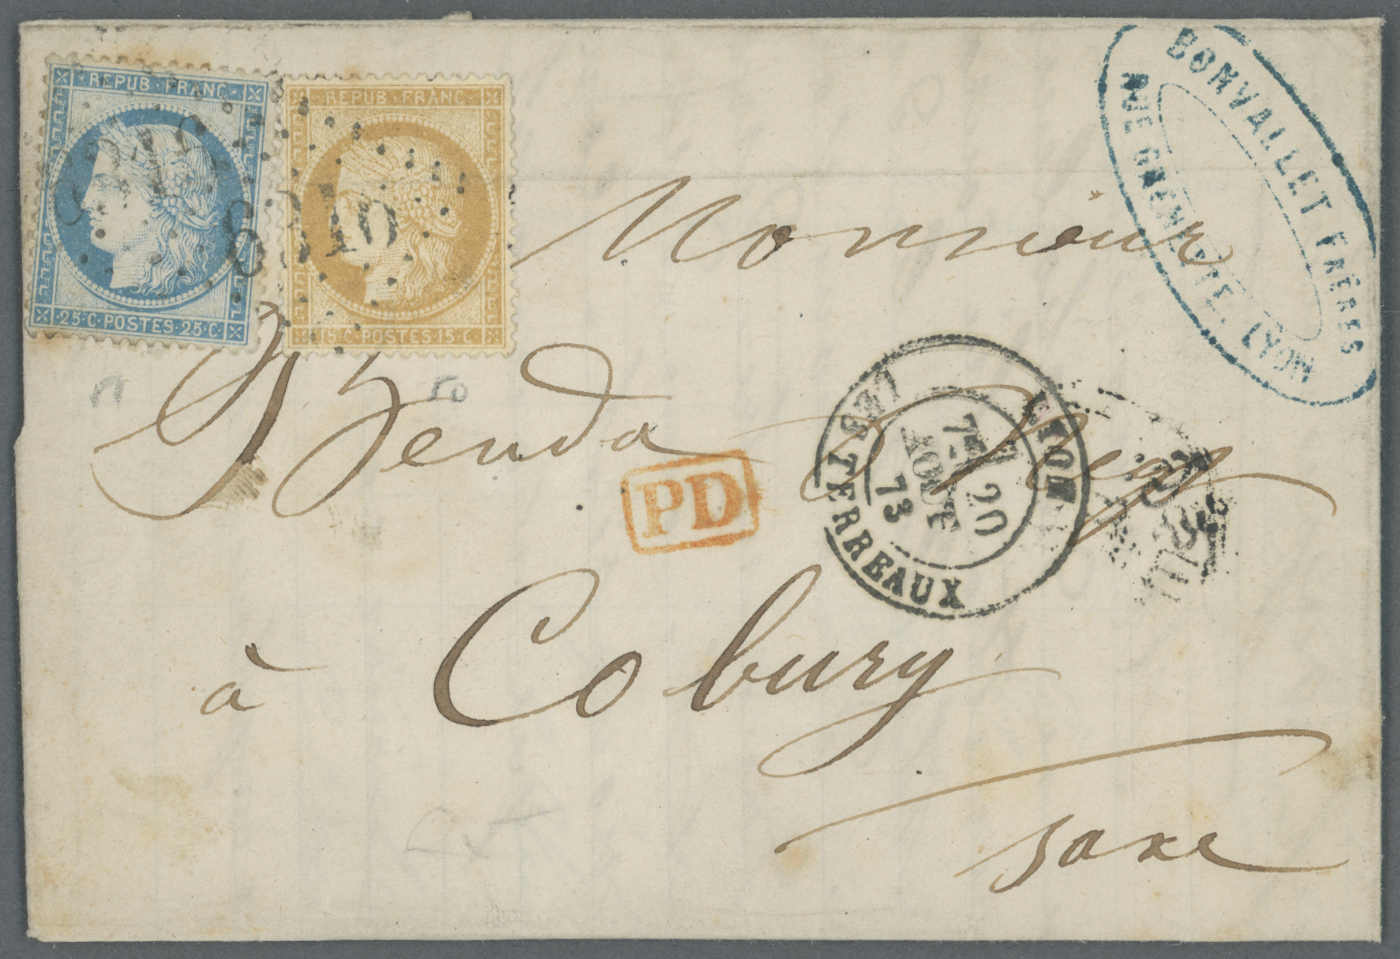 REPUB · FRANC
25 · C · POSTES · 25 · C
REPUB · FRANC
15 · C · POSTES · 15 · C
6316
BONVALLET FRÈRES
LYON
Monsieur
PD
LYON
LES TERREAUX
20
AOUT
73
à Coburg
Saxe